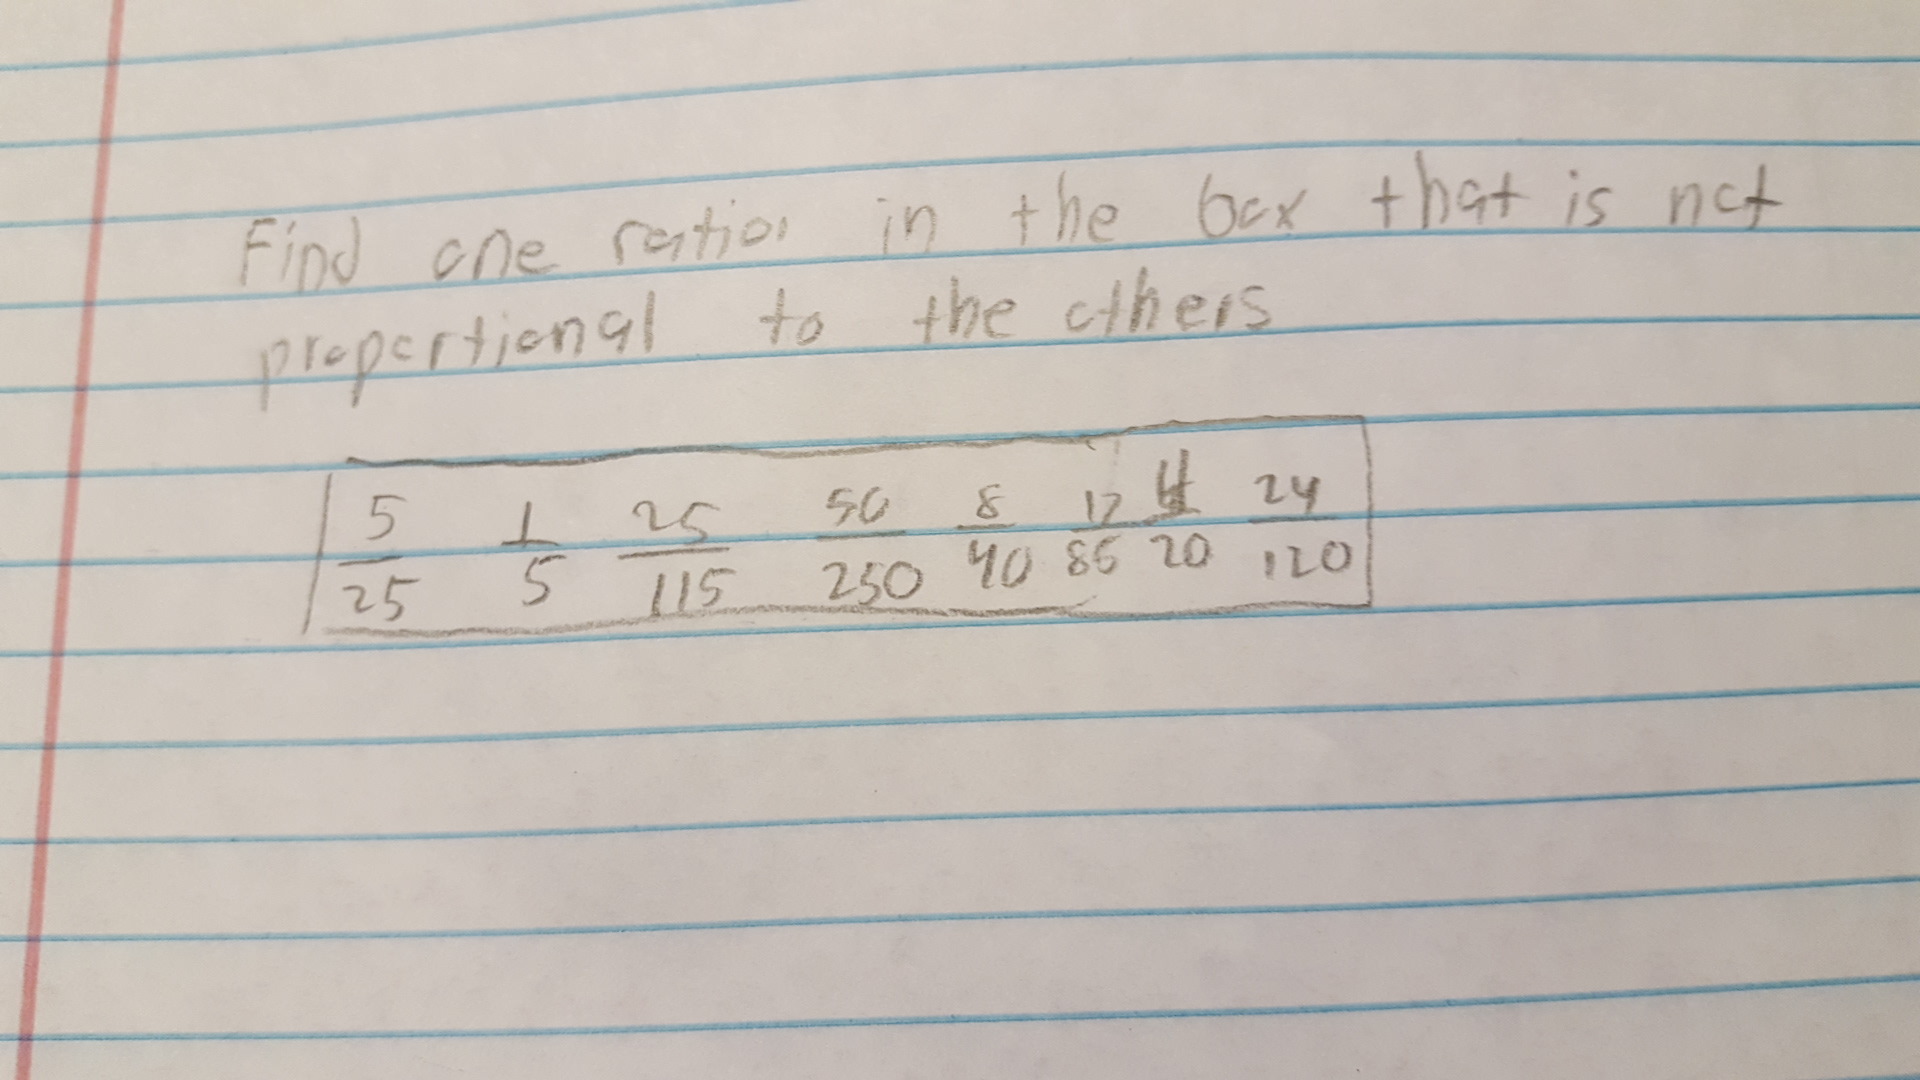 Find one ratio in the box that is not
proportional to the others
5/25 1/5 25/115 50/250 8/40 17/85 4/20 24/120